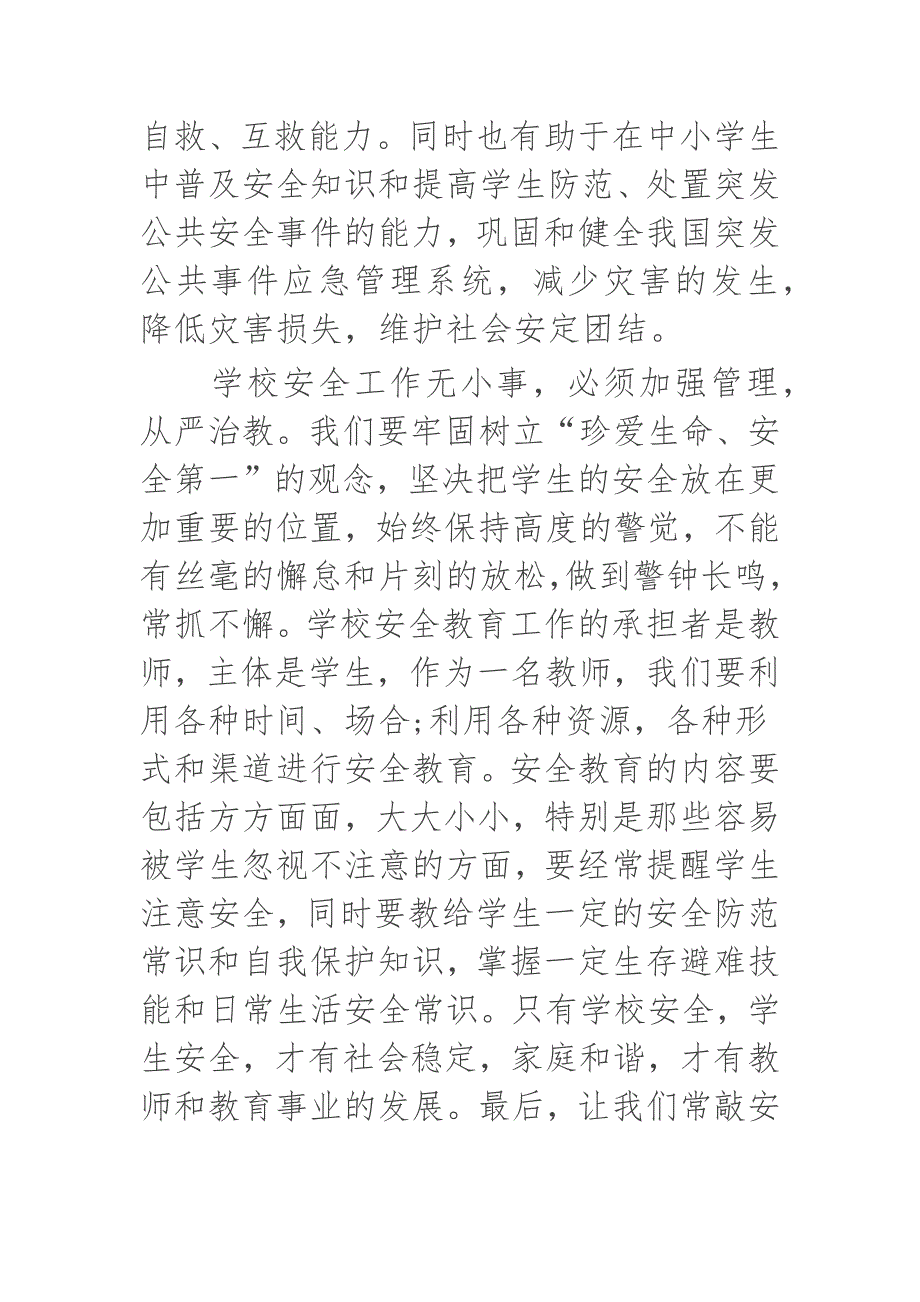 自救、互救能力。同时也有助于在中小学生
中普及安全知识和提高学生防范、处置突发
公共安全事件的能力，巩固和健全我国突发
公共事件应急管理系统，减少灾害的发生，
降低灾害损失，维护社会安定团结。
学校安全工作无小事，必须加强管理，
从严治教。我们要牢固树立“珍爱生命、安
全第一”的观念，坚决把学生的安全放在更
加重要的位置，始终保持高度的警觉，不能
有丝毫的懈怠和片刻的放松,做到警钟长鸣，
常抓不懈。学校安全教育工作的承担者是教
师，主体是学生，作为一名教师，我们要利
用各种时间、场合;利用各种资源，各种形
式和渠道进行安全教育。安全教育的内容要
包括方方面面，大大小小，特别是那些容易
被学生忽视不注意的方面，要经常提醒学生
注意安全，同时要教给学生一定的安全防范
常识和自我保护知识，掌握一定生存避难技
能和日常生活安全常识。只有学校安全，学
生安全，才有社会稳定，家庭和谐，才有教
师和教育事业的发展。最后，让我们常敲安